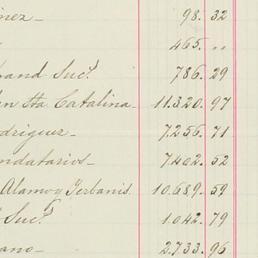 inez_ 98. 32
465. "
rand Suc.s 786. 29
en Sta. Catalina_ 11.320. 97
odriguez_ 7.256. 71
ndatarios_ 7402. 52
Alamo y Gerbanis. 10.689. 59
Suc.s 1.042. 79
ano_ 2.733. 96